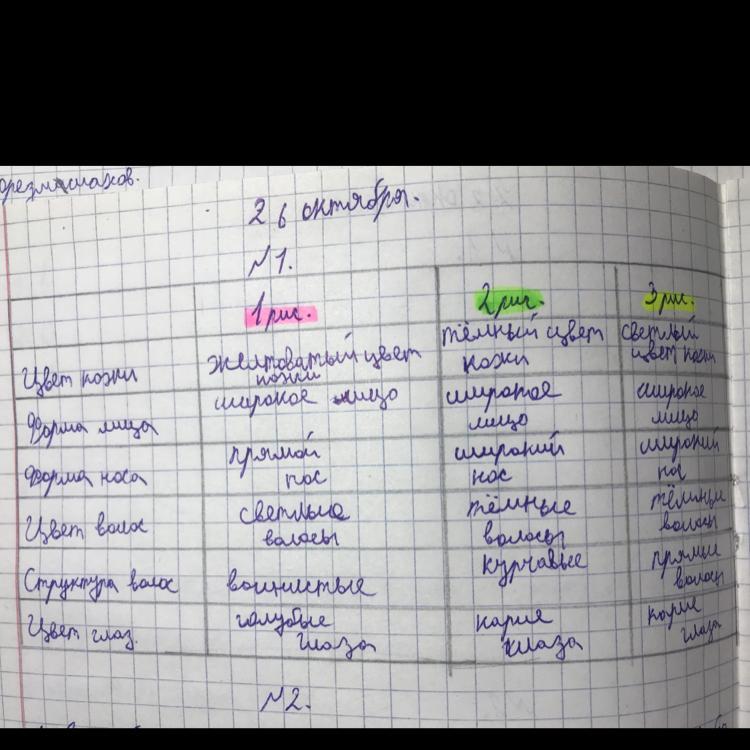 26 октября.
№1.
1 рис. 2 рис. 3 рис.
Цвет кожи желтоватый цвет кожи тёмный цвет кожи светлый цвет кожи
Форма лица широкое лицо широкое лицо широкое лицо
Форма носа прямой нос широкий нос широкий нос
Цвет волос светлые волосы тёмные волосы тёмные волосы
Структура волос волнистые курчавые прямые волосы
Цвет глаз. голубые глаза карие глаза карие глаза
№2.